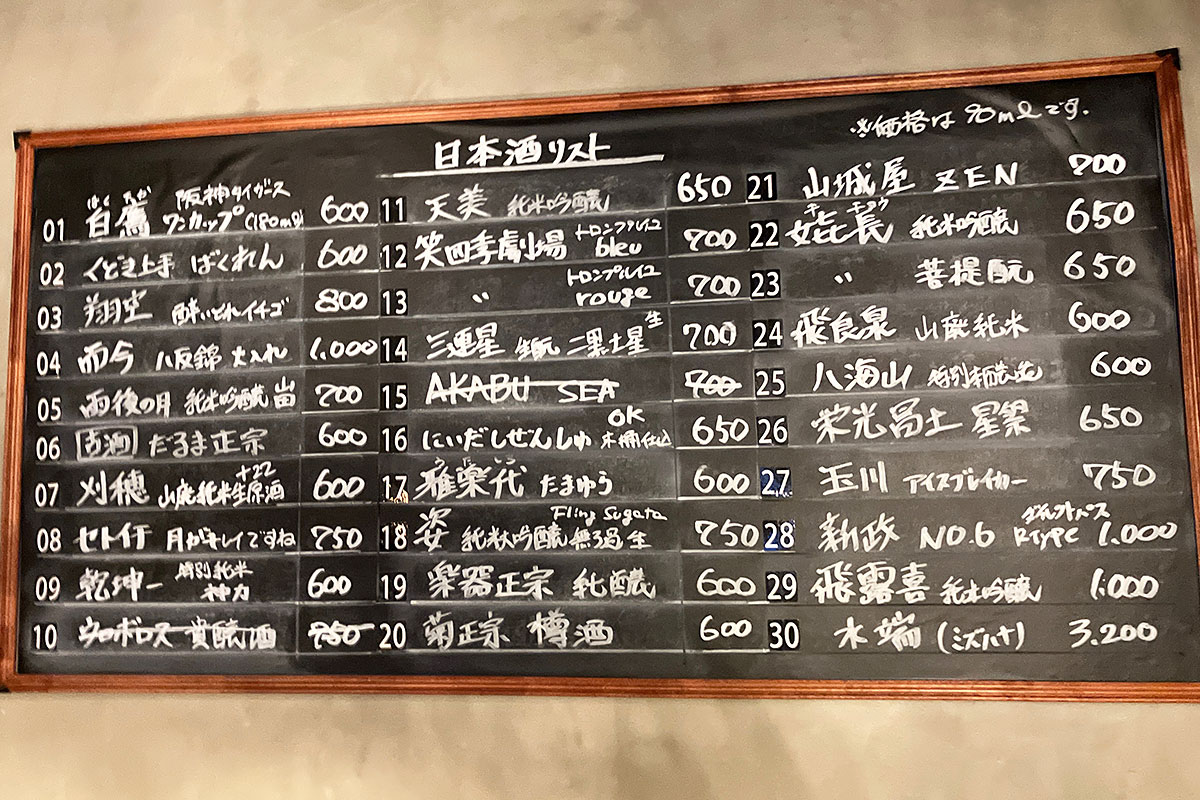 日本酒リスト
※価格は90mlです。
01 白鷹 はくたか 阪神タイガース ワンカップ(180ml) 600
02 くどき上手 ばくれん 600
03 翔空 酔いどれイチゴ 800
04 而今 八反錦 火入れ 1.000
05 雨後の月 純米吟醸 山田 700
06 古酒 だるま正宗 600
07 刈穂 +22 山廃純米生原酒 600
08 セトイチ 月がキレイですね 750
09 乾坤一 特別純米 神力 600
10 ウロボロス 貴醸酒 750
11 天美 純米吟醸 650
12 笑四季劇場 トロンプルイユ bleu 700
13 〃 トロンプルイユ rouge 700
14 三連星 生酛 二黒土星 生 700
15 AKABU SEA 700
16 にいだしぜんしゅ OK 木桶仕込 650
17 雅楽代 うたしろ たまゆう 600
18 姿 Fling Sugata 純米吟醸 無ろ過生 750
19 楽器正宗 純醸 600
20 菊正宗 樽酒 600
21 山城屋 ZEN 700
22 㐂長 キチョウ 純米吟醸 650
23 〃 菩提酛 650
24 飛良泉 山廃純米 600
25 八海山 特別本醸造 600
26 栄光冨士 星祭 650
27 玉川 アイスブレイカー 750
28 新政 NO.6 Rtype ダイレクトパス 1.000
29 飛露喜 純米吟醸 1.000
30 水端 (ミズハナ) 3.200